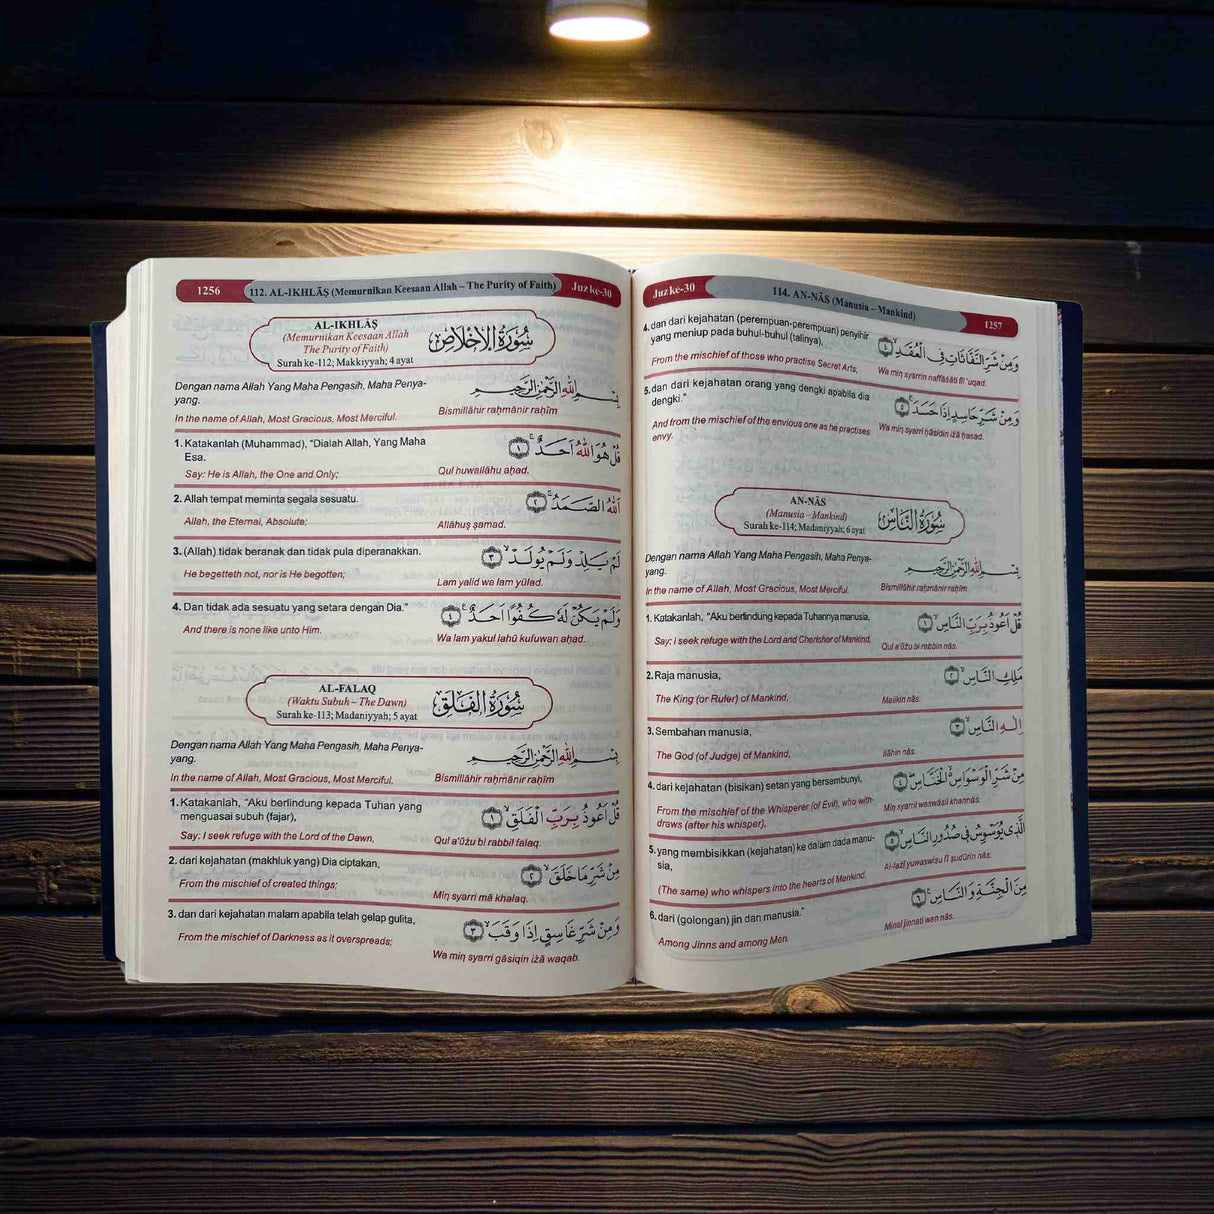 1256
112. AL-IKHLĀṢ (Memurnikan Keesaan Allah – The Purity of Faith)
Juz ke-30
AL-IKHLĀṢ
(Memurnikan Keesaan Allah
The Purity of Faith)
Surah ke-112; Makkiyyah; 4 ayat
سُوْرَةُ الْاِخْلَاصِ
Dengan nama Allah Yang Maha Pengasih, Maha Penya-
yang.
بِسْمِ اللّٰهِ الرَّحْمٰنِ الرَّحِيْمِ
In the name of Allah, Most Gracious, Most Merciful.
Bismillāhir raḥmānir raḥīm
1. Katakanlah (Muhammad), “Dialah Allah, Yang Maha
Esa.
قُلْ هُوَ اللّٰهُ اَحَدٌۚ ١
Say: He is Allah, the One and Only;
Qul huwallāhu aḥad.
2. Allah tempat meminta segala sesuatu.
اَللّٰهُ الصَّمَدُۚ ٢
Allah, the Eternal, Absolute;
Allāhuṣ ṣamad.
3. (Allah) tidak beranak dan tidak pula diperanakkan.
لَمْ يَلِدْ وَلَمْ يُوْلَدْۙ ٣
He begetteth not, nor is He begotten;
Lam yalid wa lam yūlad.
4. Dan tidak ada sesuatu yang setara dengan Dia.”
وَلَمْ يَكُنْ لَّهٗ كُفُوًا اَحَدٌ ٤
And there is none like unto Him.
Wa lam yakul lahū kufuwan aḥad.
AL-FALAQ
(Waktu Subuh – The Dawn)
Surah ke-113; Madaniyyah; 5 ayat
سُوْرَةُ الْفَلَقِ
Dengan nama Allah Yang Maha Pengasih, Maha Penya-
yang.
بِسْمِ اللّٰهِ الرَّحْمٰنِ الرَّحِيْمِ
In the name of Allah, Most Gracious, Most Merciful.
Bismillāhir raḥmānir raḥīm
1. Katakanlah, “Aku berlindung kepada Tuhan yang
menguasai subuh (fajar),
قُلْ اَعُوْذُ بِرَبِّ الْفَلَقِۙ ١
Say: I seek refuge with the Lord of the Dawn,
Qul a‘ūżu bi rabbil falaq.
2. dari kejahatan (makhluk yang) Dia ciptakan,
مِنْ شَرِّ مَا خَلَقَۙ ٢
From the mischief of created things;
Miṇ syarri mā khalaq.
3. dan dari kejahatan malam apabila telah gelap gulita,
وَمِنْ شَرِّ غَاسِقٍ اِذَا وَقَبَۙ ٣
From the mischief of Darkness as it overspreads;
Wa miṇ syarri gāsiqin iżā waqab.
Juz ke-30
114. AN-NĀS (Manusia – Mankind)
1257
4. dan dari kejahatan (perempuan-perempuan) penyihir
yang meniup pada buhul-buhul (talinya),
وَمِنْ شَرِّ النَّفّٰثٰتِ فِى الْعُقَدِۙ ٤
From the mischief of those who practise Secret Arts;
Wa miṇ syarrin naffāṡāti fil ‘uqad.
5. dan dari kejahatan orang yang dengki apabila dia
dengki.”
وَمِنْ شَرِّ حَاسِدٍ اِذَا حَسَدَ ٥
And from the mischief of the envious one as he practises
envy.
Wa miṇ syarri ḥāsidin iżā ḥasad.
AN-NĀS
(Manusia – Mankind)
Surah ke-114; Madaniyyah; 6 ayat
سُوْرَةُ النَّاسِ
Dengan nama Allah Yang Maha Pengasih, Maha Penya-
yang.
بِسْمِ اللّٰهِ الرَّحْمٰنِ الرَّحِيْمِ
In the name of Allah, Most Gracious, Most Merciful.
Bismillāhir raḥmānir raḥīm
1. Katakanlah, “Aku berlindung kepada Tuhannya manusia,
قُلْ اَعُوْذُ بِرَبِّ النَّاسِۙ ١
Say: I seek refuge with the Lord and Cherisher of Mankind,
Qul a‘ūżu bi rabbin nās.
2. Raja manusia,
مَلِكِ النَّاسِۙ ٢
The King (or Ruler) of Mankind,
Malikin nās.
3. Sembahan manusia,
اِلٰهِ النَّاسِۙ ٣
The God (of Judge) of Mankind,
ilāhin nās.
4. dari kejahatan (bisikan) setan yang bersembunyi,
مِنْ شَرِّ الْوَسْوَاسِ ەۙ الْخَنَّاسِۖ ٤
From the mischief of the Whisperer (of Evil), who with-
draws (after his whisper),
Miṇ syarril waswāsil khannās.
5. yang membisikkan (kejahatan) ke dalam dada manu-
sia,
الَّذِيْ يُوَسْوِسُ فِيْ صُدُوْرِ النَّاسِۙ ٥
(The same) who whispers into the hearts of Mankind,
Al-lażī yuwaswisu fī ṣudūrin nās.
6. dari (golongan) jin dan manusia.”
مِنَ الْجِنَّةِ وَالنَّاسِ ٦
Among Jinns and among Men.
Minal jinnati wan nās.